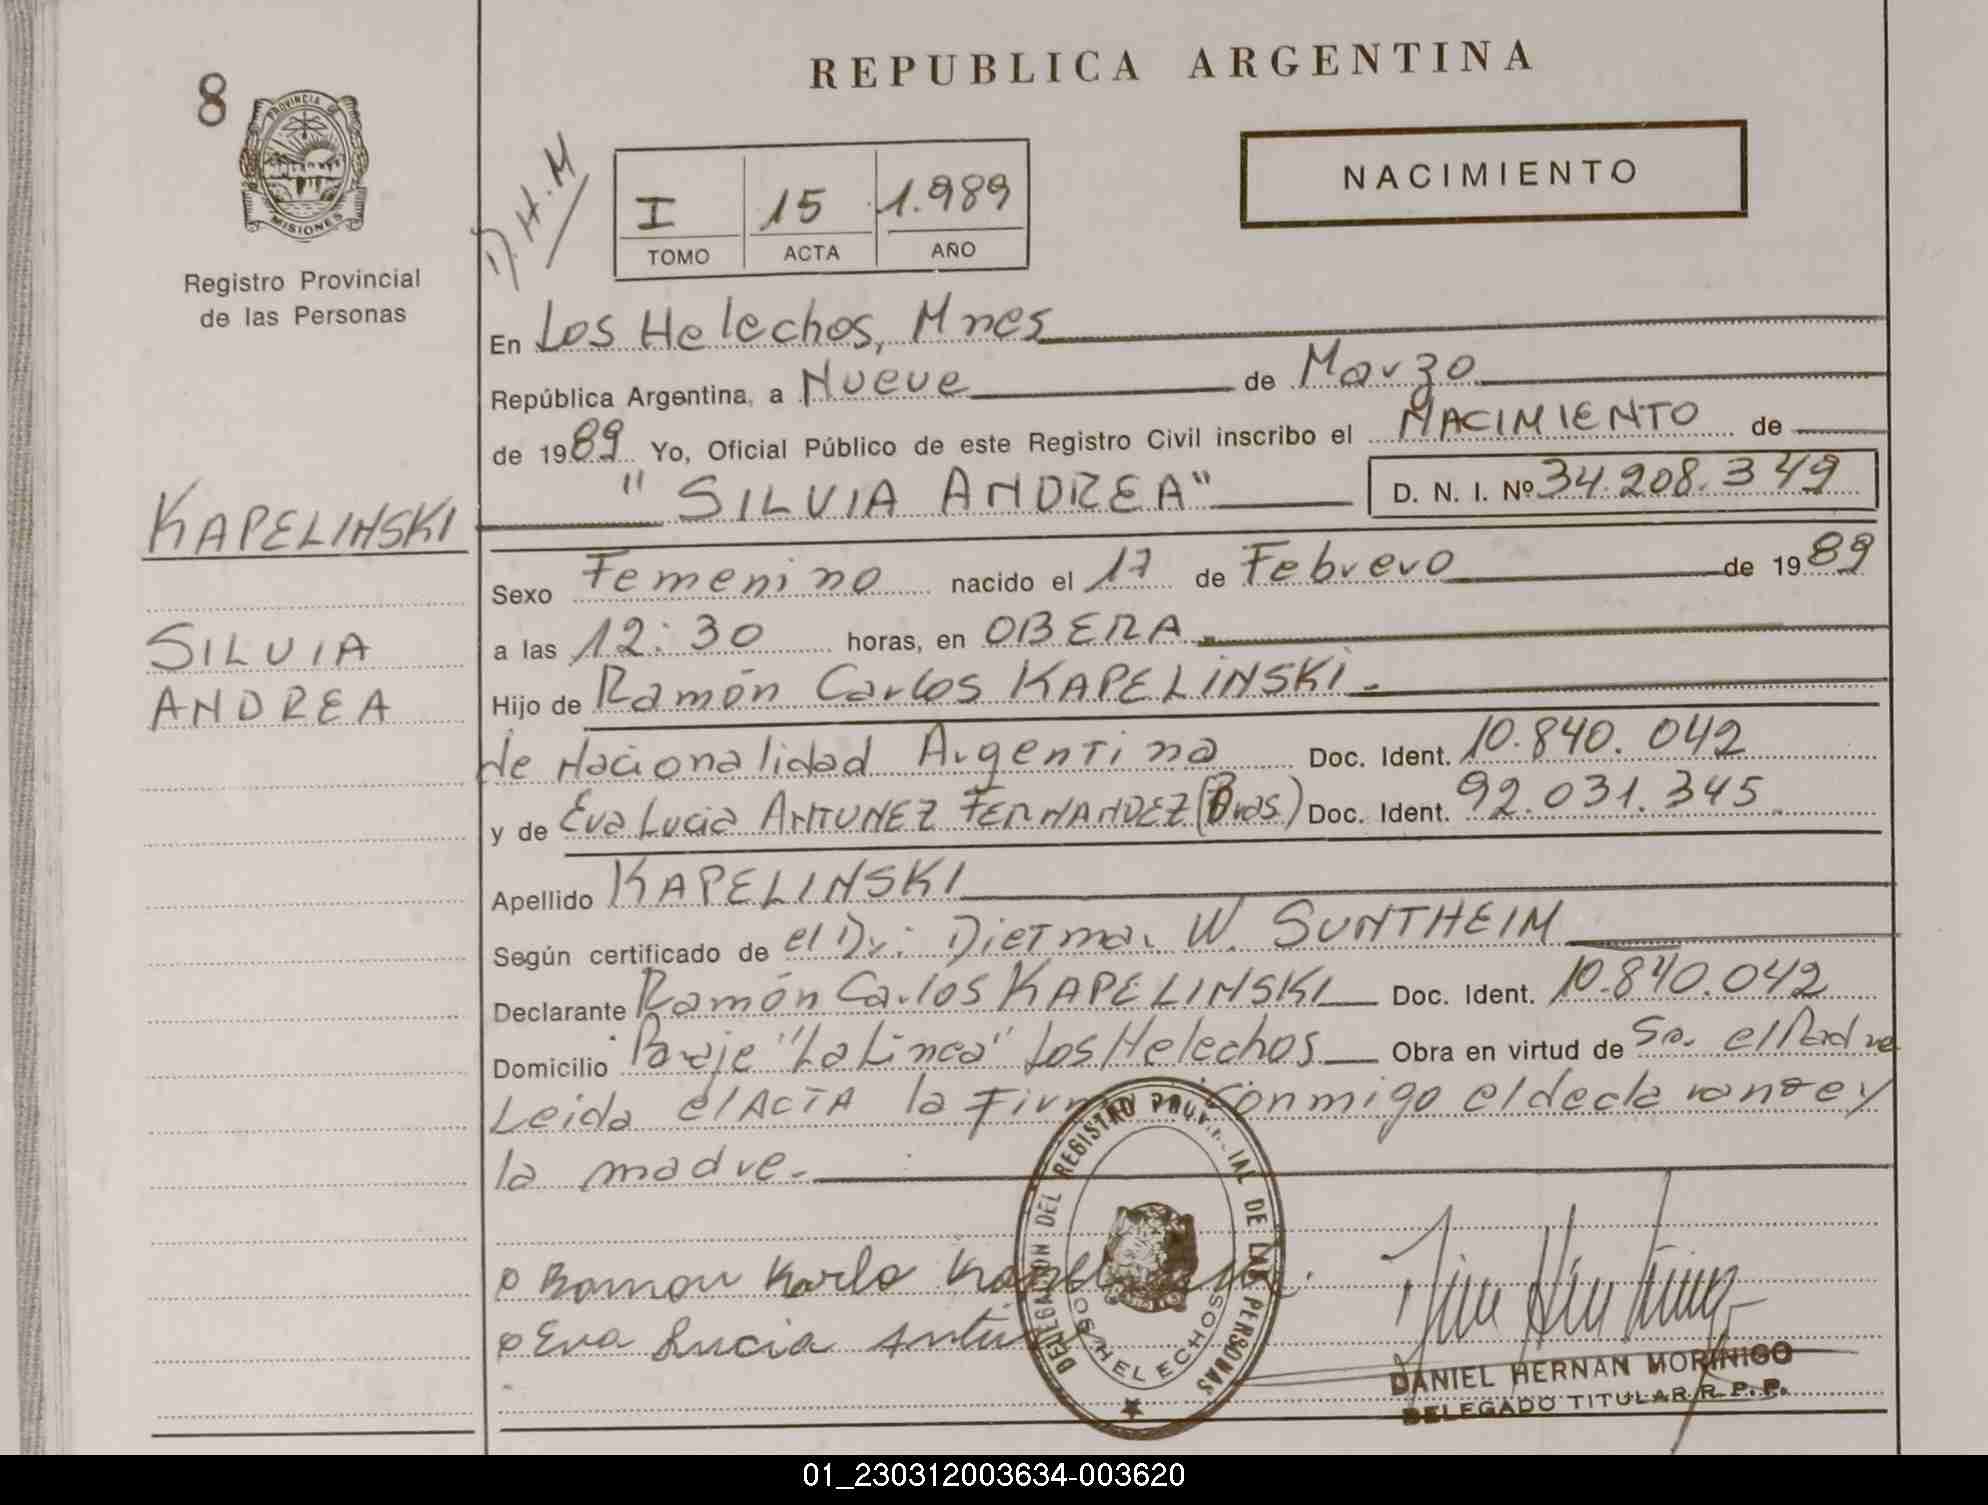 REPUBLICA ARGENTINA
8
PROVINCIA DE
MISIONES
Registro Provincial
de las Personas
D.H.M
I 15 1.989
TOMO ACTA AÑO
NACIMIENTO
En Los Helechos, Mnes
República Argentina, a Nueve de Marzo
de 1989 Yo, Oficial Público de este Registro Civil inscribo el NACIMIENTO de
"SILVIA ANDREA" D. N. I. Nº 34.208.349
KAPELINSKI
SILVIA
ANDREA
Sexo Femenino nacido el 17 de Febrero de 1989
a las 12:30 horas, en OBERA
Hijo de Ramón Carlos KAPELINSKI.
de Nacionalidad Argentina Doc. Ident. 10.840.042
y de Eva Lucia ANTUNEZ FERNANDEZ (Bras.) Doc. Ident. 92.031.345
Apellido KAPELINSKI
Según certificado de el Dr: Dietmar W. SUNTHEIM
Declarante Ramón Carlos KAPELINSKI Doc. Ident. 10.840.042
Domicilio Paraje "La Linea" Los Helechos Obra en virtud de So. el Padre
Leida el ACTA la Firma conmigo el declarante y
la madre.
DELEGACION DEL REGISTRO PROVINCIAL DE LAS PERSONAS
LOS HELECHOS
Ramon Karlo
Eva Lucia
DANIEL HERNAN MORINIGO
DELEGADO TITULAR R. P. P.
01_230312003634-003620